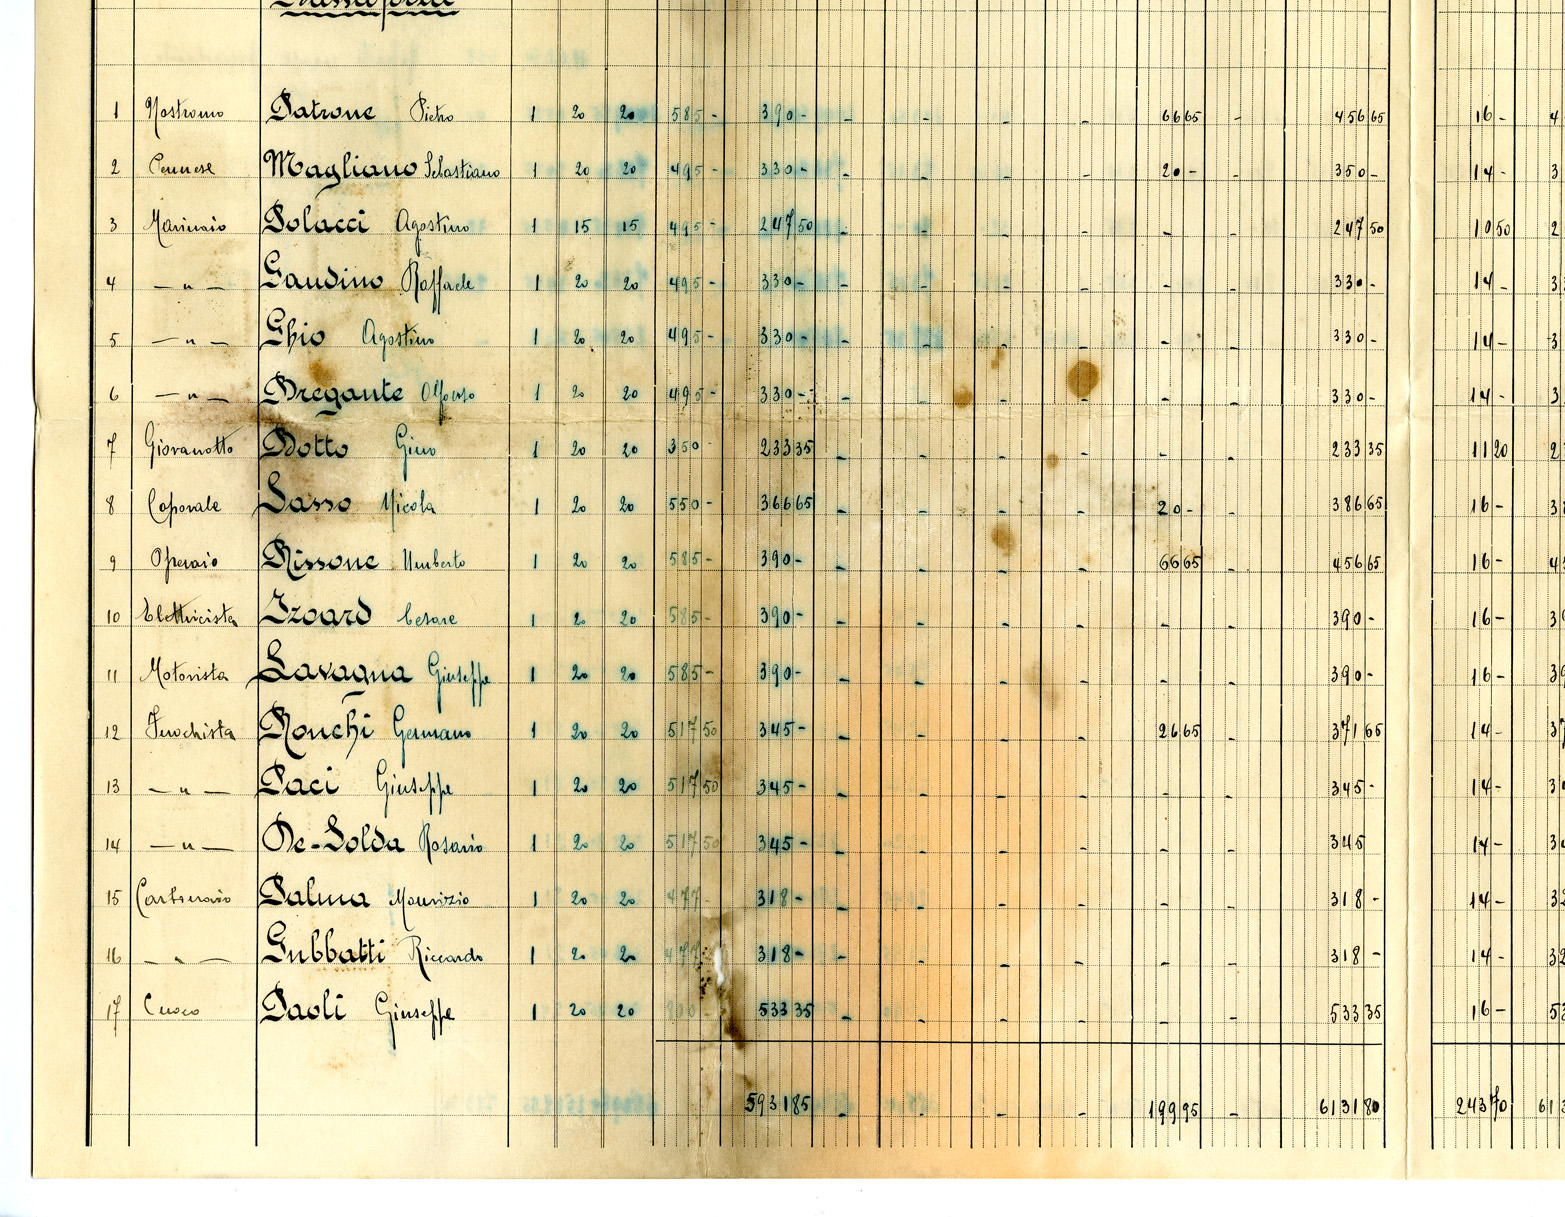 1 Nostromo Patrone Pietro 1 20 20 585 - 390 - - - - - 66 65 - 456 65 16 - 4
2 Pennese Magliano Sebastiano 1 20 20 495 - 330 - - - - - 20 - - 350 - 14 - 3
3 Marinaio Polacci Agostino 1 15 15 495 - 247 50 - - - - - - 247 50 10 50 2
4 — " — Gaudino Raffaele 1 20 20 495 - 330 - - - - - - - 330 - 14 - 33
5 — " — Ghio Agostino 1 20 20 495 - 330 - - - - - - - 330 - 14 - 3
6 — " — Bregante Alfonso 1 20 20 495 - 330 - - - - - - - 330 - 14 - 3
7 Giovanotto Botto Gino 1 20 20 350 - 233 35 - - - - - - 233 35 11 20 2
8 Caporale Sasso Nicola 1 20 20 550 - 366 65 - - - - 20 - - 386 65 16 - 38
9 Operaio Rissone Umberto 1 20 20 585 - 390 - - - - - 66 65 - 456 65 16 - 45
10 Elettricista Izoard Cesare 1 20 20 585 - 390 - - - - - - - 390 - 16 - 39
11 Motorista Lavagna Giuseppe 1 20 20 585 - 390 - - - - - - - 390 - 16 - 39
12 Fuochista Ronchi Germano 1 20 20 517 50 345 - - - - - 26 65 - 371 65 14 - 37
13 — " — Paci Giuseppe 1 20 20 517 50 345 - - - - - - - 345 - 14 - 34
14 — " — De-Solda Rosario 1 20 20 517 50 345 - - - - - - - 345 14 - 34
15 Carbonaio Palma Maurizio 1 20 20 477 - 318 - - - - - - - 318 - 14 - 32
16 — " — Gubbatti Riccardo 1 20 20 477 - 318 - - - - - - - 318 - 14 - 32
17 Cuoco Paoli Giuseppe 1 20 20 800 - 533 35 - - - - - - 533 35 16 - 53
5931 85 - - - - 199 95 - 6131 80 243 70 613